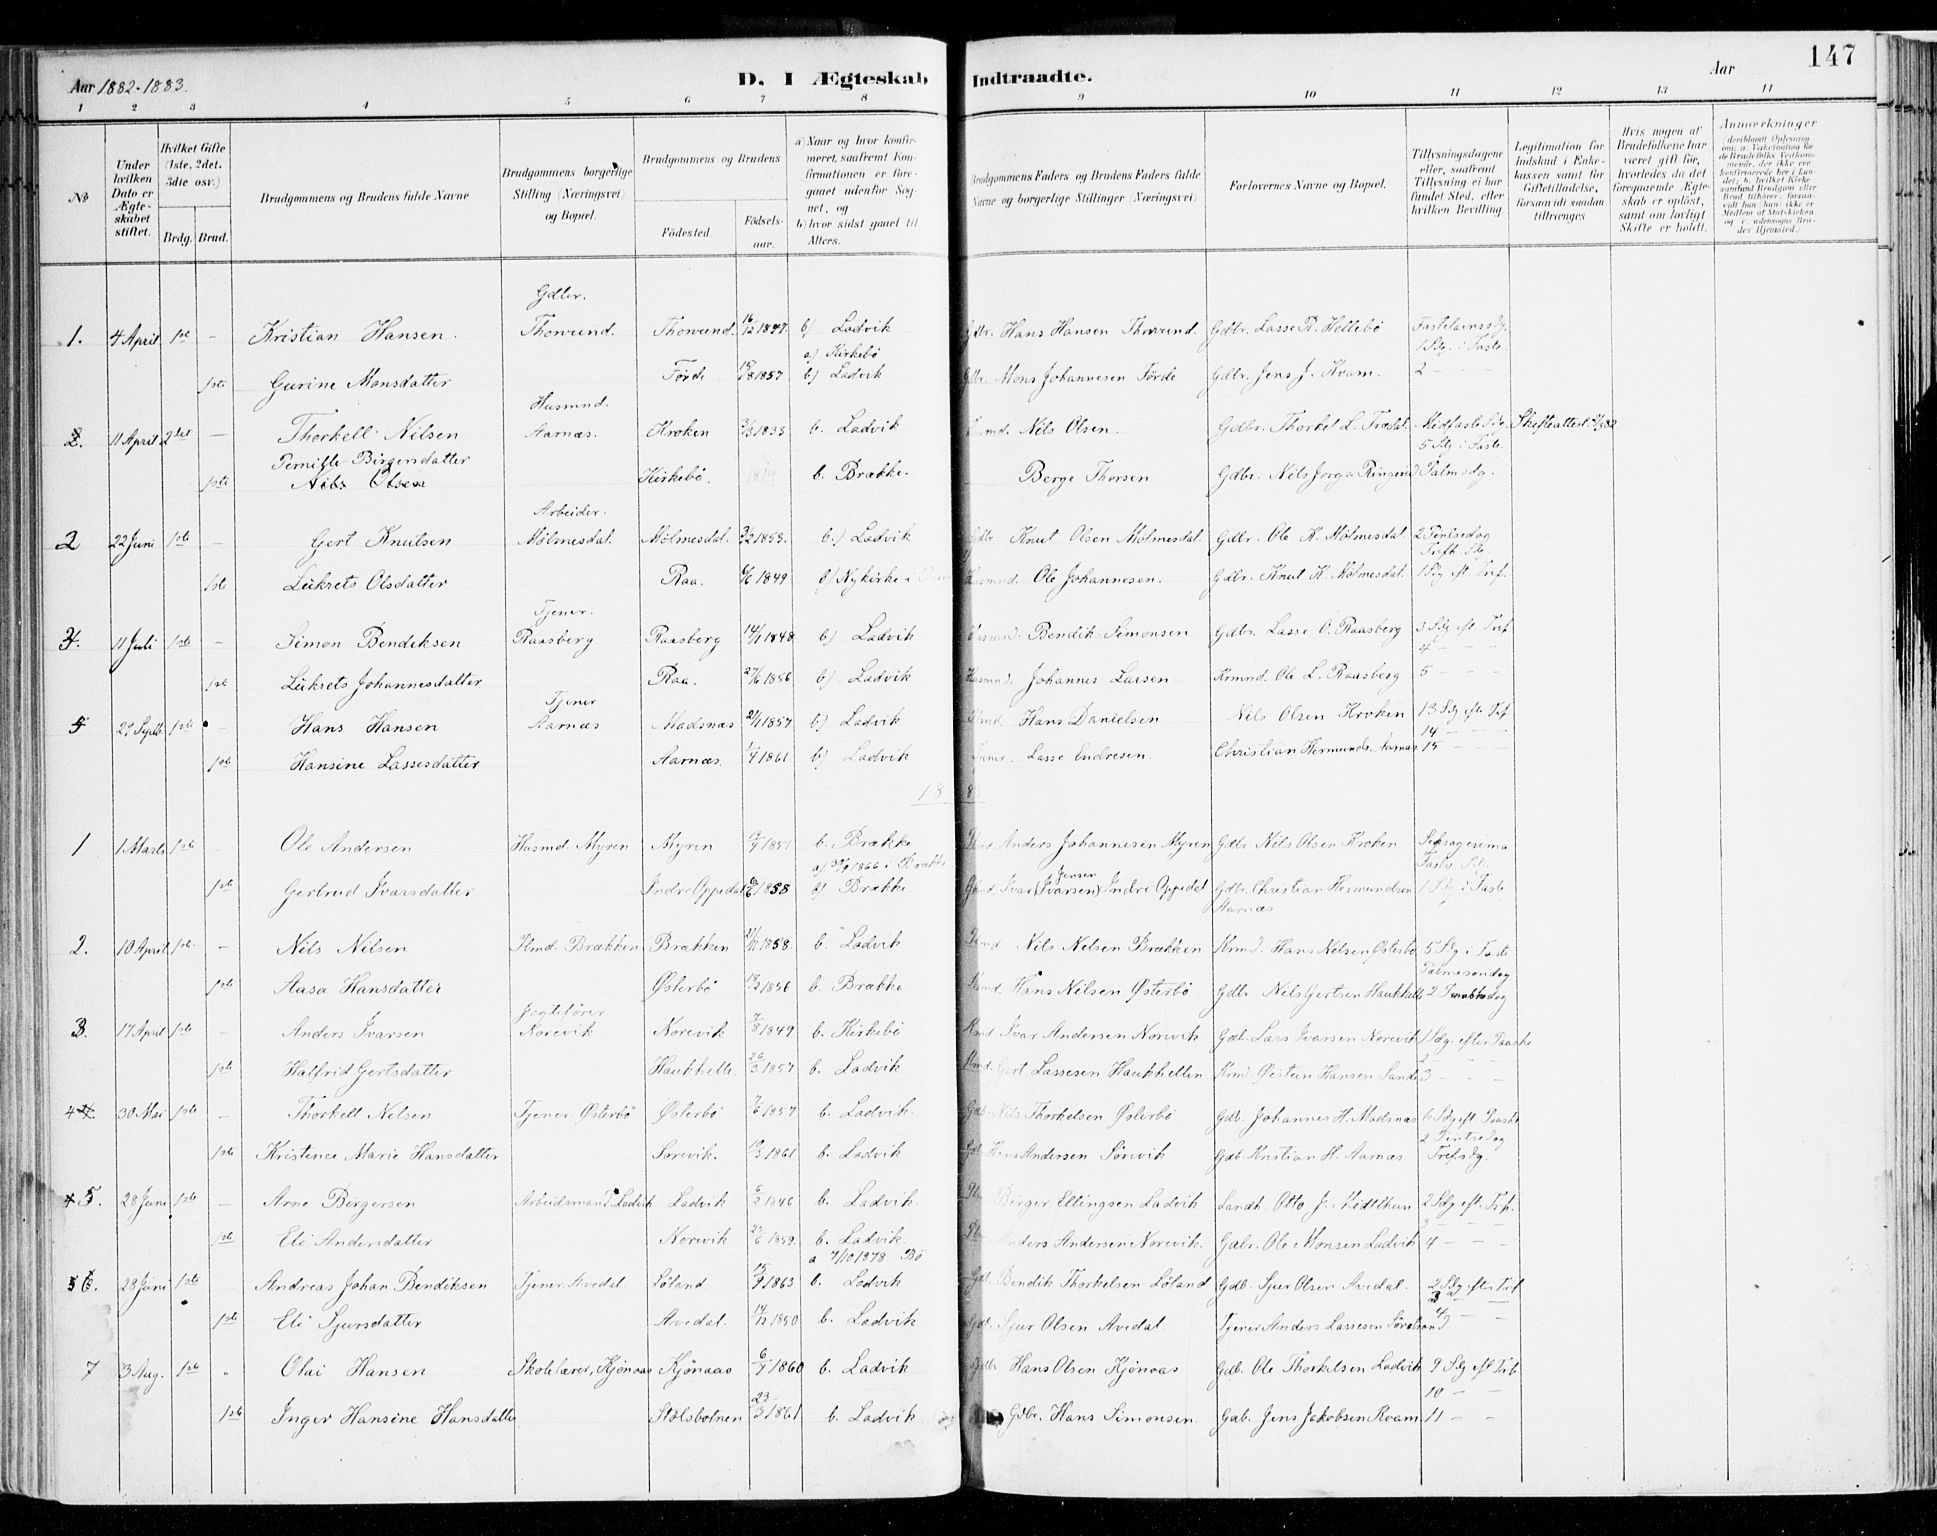 147
Aar 1882-1883. D. I Ægteskab Indtraadte. Aar
1 2 3 4 5 6 7 8 9 10 11 12 13 14
No
Under hvilken Dato er Ægteskabet stiftet.
Hvilket Gifte (1ste, 2det, 3die osv.)
Brdg. Brud.
Brudgommens og Brudens fulde Navne
Brudgommens borgerlige Stilling (Næringsvei) og Bopæl.
Brudgommens og Brudens
Fødested. Fødselsaar.
a) Naar og hvor konfirmeret, saafremt Konfirmationen er foregaaet udenfor Sognet, og
b) hvor sidst gaaet til Alters.
Brudgommens Faders og Brudens Faders fulde Navne og borgerlige Stillinger (Næringsvei)
Forlovernes Navne og Bopæl.
Tillysningsdagene eller, saafremt Tillysning ei har fundet Sted, efter hvilken Bevilling.
Legitimation for Indskud i Enkekassen samt for Giftetilladelse, forsaavidt saadan tiltrænges
Hvis nogen af Brudefolkene har været gift før, hvorledes da det foregaaende Ægteskab er opløst, samt om lovligt Skifte er holdt.
Anmerkninger
Gdbr.
1. 4 April 1ste - Kristian Hansen. Thorsund. Thorsund 16/12 1847. b) Ladvik Gdbr. Hans Hansen Thorsund. Gdbr. Lasse R. Hellebö Fastelavnssdg.
a) Kirkebö 1 Sdg. i Faste
1ste Gurine Monsdatter Förde 1857 b) Ladvik Gdbr. Mons Johannesen Förde Gdbr. Jens J. Kvam. 2 - - -
Husmnd.
2. 11 April 2det - Thorkell Nilsen Aarnæs. Kroken 1833 b. Ladvik Nils Olsen. Gdbr. Thorkel L. Trædal Midfaste Sdg. Skifteattest
Pernille Birgersdatter 5 Sdg. i Faste
1ste Nils Olsen Kirkebö. b. Brække. Berge Thorsen Gdbr. Nils Jörgs. Ringereid Palmesdg.
Arbeider.
2 22 Juni 1ste - Gert Knutsen Mölmesdal. Mölmesdal. 1853. b.) Ladvik Gdbr Knut Olsen Mölmesdal. Gdbr. Ole K. Mölmesdal 2 Pintsedag
Treft. Sdg.
1ste Lukrets Olsdatter Raa. 1849 Nykirke i Husmnd. Ole Johannesen. Gdbr. Knut K. Mölmesdal. 1 Sdg eft. Tref.
Tjener.
3. 11 Juli 1ste - Simon Bendiksen Raasberg Raasberg 14/1 1848 b) Ladvik Husmnd. Bendik Simonsen Gdbr. Lasse O. Raasberg 3 Sdg eft Tref
4 - - -
1ste Lukrets Johannesdatter Raa. 27/6 1856 b) Ladvik Husmnd. Johannes Larsen Krmnd. Ole L. Raasberg 5 - - -
Tjener
5 29 Septb. 1ste - Hans Hansen Aarnæs Madsnæs 21/1 1857 b) Ladvik Hans Danielsen Nils Olsen Kroken 13 Sdg eft Tref
14 - - -
1ste Hansine Lassesdatter Aarnæs. 1861 b) Ladvik Tjener Lasse Endresen Christian Hermunds. Aarnæs 15 - - -
18 8
1 1 Marts 1ste - Ole Andersen Husmd. Myren Myren 1851 b. Brække Anders Johannesen Myren Gdbr Nils Olsen Kroken Seksagesima
a) 30/9 1866 i Brække Faste Sdg.
Jensen
1ste Gertrud Ivarsdatter Indre Oppedal 1858 Brække Ivar (Ivarsen) Indre Oppedal Gdbr Christian Hermundsen 1 Sdg i Faste
Aarnæs
2. 10 April 1ste - Nils Nilsen Hmd. Brækken Brækken 21/11 1858 b. Ladvik Nils Nilsen Brækken Krmd. Hans Nilsen Österbö 5 Sdg i Faste
Palmesöndag
1ste Aasa Hansdatter Österbö 1856 b. Brække Hans Nilsen Österbö Gdbr Nils Gertsen Haukhelle
Jegtefører
3. 17 April 1ste - Anders Ivarsen Norevik Norevik 7/8 1849 b. Kirkebö Ivar Andersen Norevik Gdb. Lars Ivarsen Norevik 1 Sdg. efter Paaske
2 - - -
1ste Halfrid Gertsdatter Haukhelle. 26/3 1857 b. Ladvik Gert Lassesen Haukhellen Krmd Østein Hansen Sande 3 - - -
4 30 Mai 1ste - Thorkell Nilsen Tjener Österbö Österbö 7/6 1857 b. Ladvik. Gdb. Nils Thorkelsen Österbö Gdb. Johannes H. Madsnæs 6 Sdg eft. Paaske
2 Pintsedag
1ste Kristence Marie Hansdatter Sörevik. 1861 b. Ladvik Gdb. Hans Andersen Sörevik Gdb. Kristian H. Aarnæs. Trefsdg.
5. 28 Juni 1ste - Arne Börgersen Arbeidsmand Ladvik Ladvik 1846 b. Ladvik. Birger Ellingsen Ladvik Landh. Otto J. Midtlhun 2 Sdg eft. Trf.
3 - - -
1ste Eli Andersdatter Norevik 23/6 1859. b. Ladvik Anders Andersen Norevik. Gdbr. Ole Monsen Ladvik 4 - - -
a 7/10 1878 Bö
6. 28 Juni 1ste Andreas Johan Bendiksen Tjener Avedal. Löland 15/9 1863 b. Ladvik Gdb. Bendik Thorkelsen Löland Gdb. Sjur Olsen Avedal. 2 Sdg efter Trf
3 - -
1ste Eli Sjursdatter Avedal. 14/12 1850 b. Ladvik Gdb. Sjur Olsen Avedal. Tjener Anders Lassesen 4 -
7 3 Aug. 1ste " Olai Hansen Skolelærer, Kjönaas Kjönaas 6/1 1860 b. Ladvik Gdbr Hans Olsen Kjönaas Gdb. Ole Thorkelsen Ladvik 9 Sdg eft Trf
10 - -
1ste Inger Hansine Hansdatter Stölsbotnen 23/3 1861 b. Ladvik Gdbr. Hans Simonsen Gdb. Jens Jakobsen Kvam 11 - -